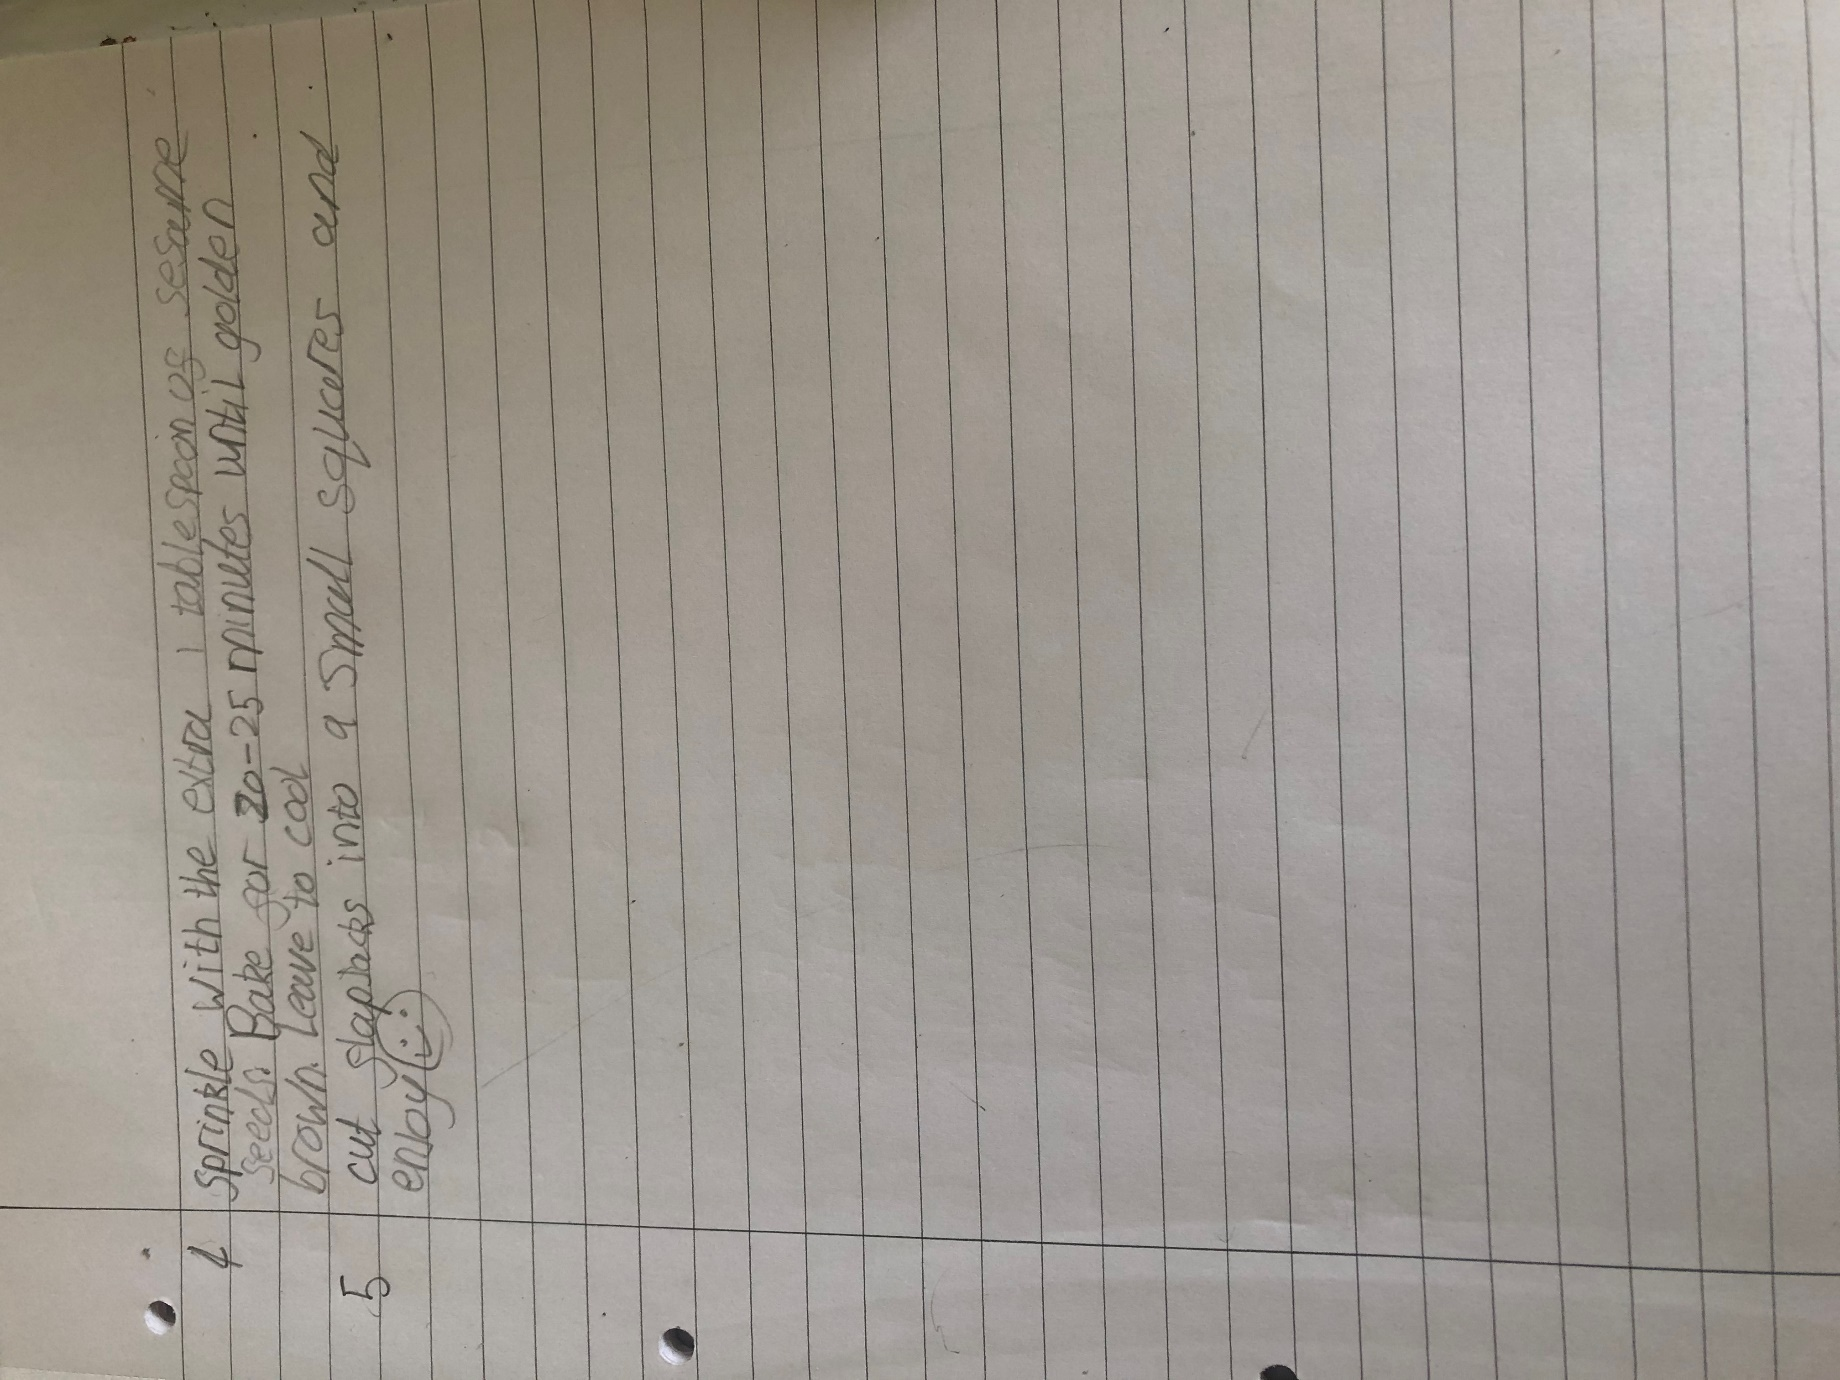 4 Sprinkle with the extra 1 tablespoon of sesame
seeds. Bake for 20-25 minutes until golden
brown. Leave to cool
5 cut flapjacks into 9 small squares and
enjoy